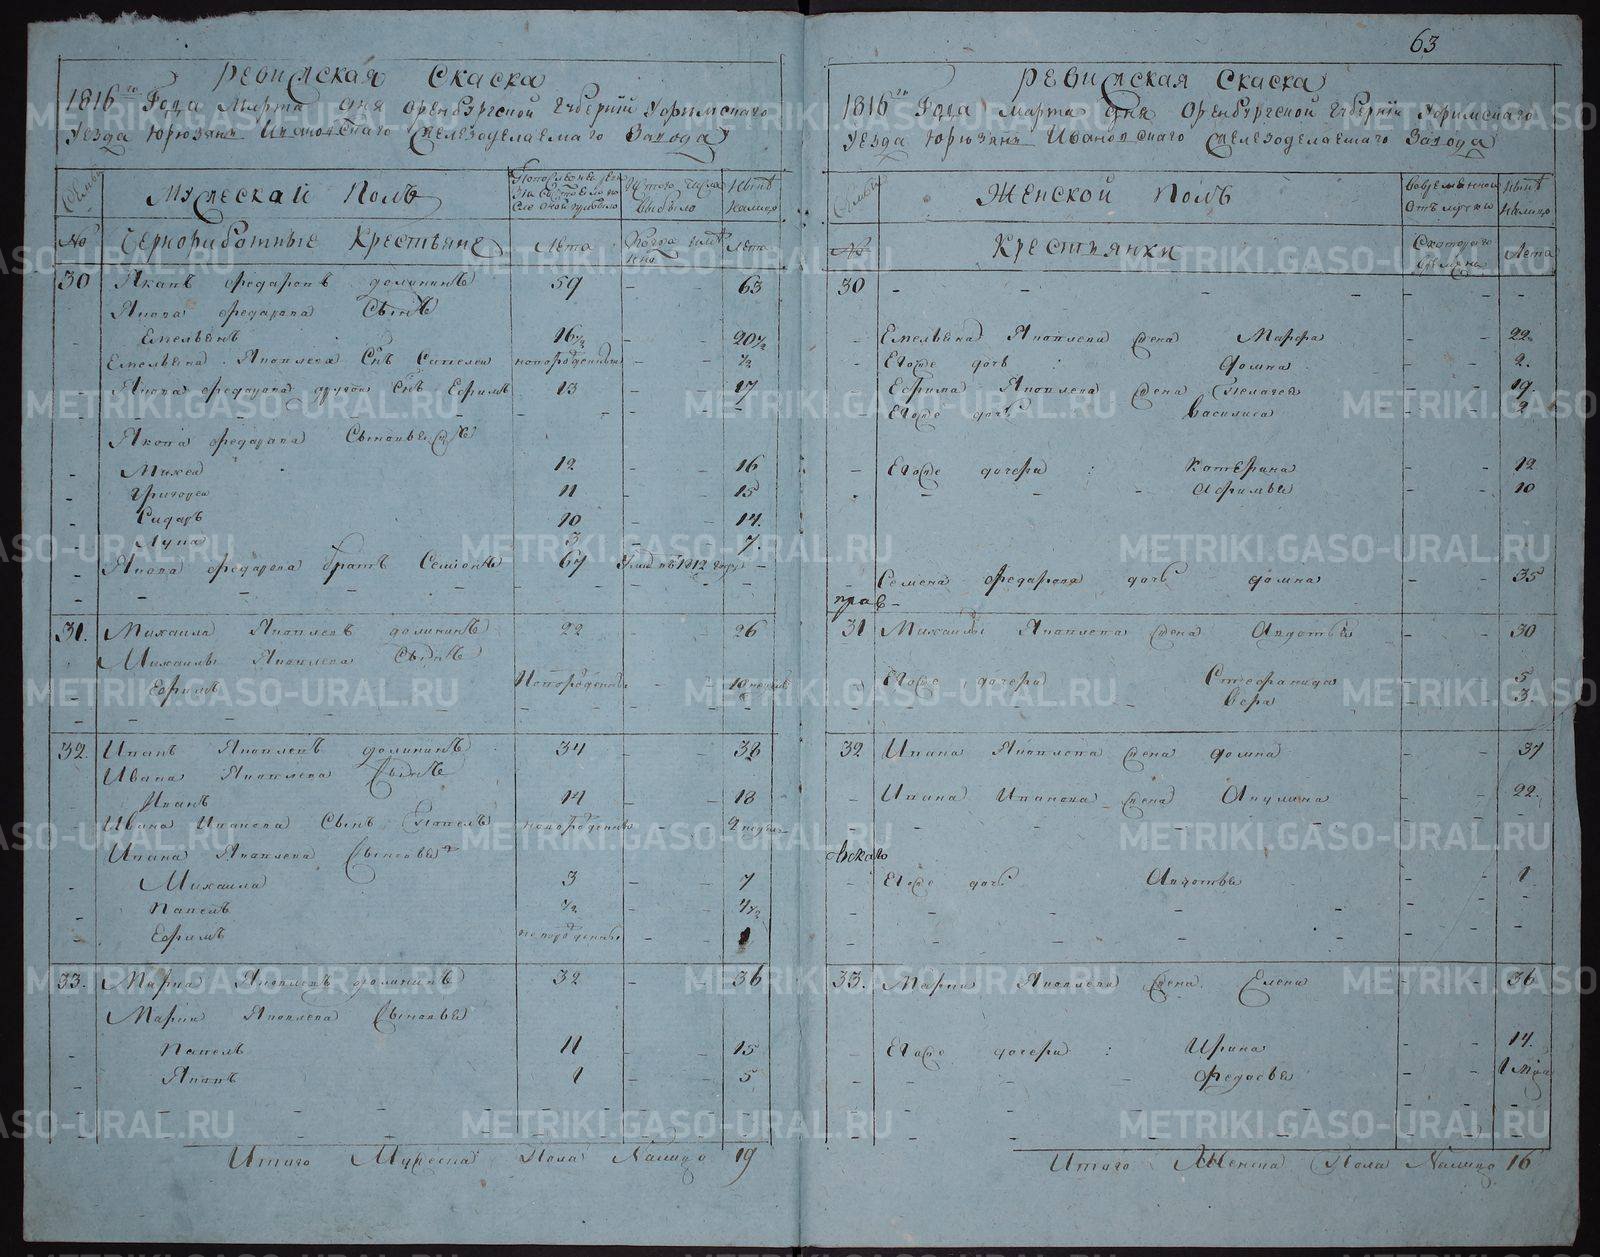 63
Ревижская Скаска
1816го Года Марта дня Оренбургской Губернии Уфимскаго
Уезда Юрюзань Ивановскаго Железоделаемаго Завода
Мужескай Полъ
выбыло
№ Чернорабочные Крестьяне Лета Лета
30 Яковъ Федоровъ долининъ 59 - - 63
Якова Федарова Сынъ
Емельянъ 16 1/2 - - 20 1/2
Емельяна Яковлева Снъ Савелеи новорожденныи 1/2
Якова Федарова другои Снъ Ефимъ 13 - - 17
Якова Федарова Сыновья
Михеа 12 - - 16
Григореи 11 - - 15
Сидаръ 10 - - 14.
Лупа 3 - - 7.
Якова Федарова братъ Семионъ 67 Умре въ 1812 году -
31. Михаила Яковлевъ долининъ 22 - - 26
Михаилы Яковлева Сынъ
Ефимъ Новорожденны 10 недель
32. Иванъ Яковлевъ долининъ 34 - - 38
Ивана Яковлева Сынъ
Иванъ 14 - - 18
Ивана Иванова Сынъ Павелъ новорожденны 2 недели
Ивана Яковлева Сыновья
Михаила 3 - - 7
Павелъ 1/2 - - 4 1/2
Ефимъ новорожденны
33. Марка Яковлевъ долининъ 32 - - 36
Марки Яковлева Сыновья
Павелъ 11 - - 15
Яковъ 1 - - 5
Итого Мужеска Пола Налицо 19
Ревижская Скаска
1816го Года Марта дня Оренбургской Губернии Уфимскаго
Уезда Юрюзань Ивановскаго Железоделаемаго Завода
Женской Полъ
№ Крестьянки Лета
30
Емельяна Яковлева жена Марфа - - 22
Егоже дочь Домна - - 2.
Ефима Яковлева жена Пелагея - - 19
Егоже дочь Василиса - - 2
Егоже дочери: Катерина - - 12
Афимья - - 10
Семена Федарова дочь домна - - 35
прав-
31 Михаилы Яковлева жена Авдотья - - 30
Егоже дочери Стефанида - - 5
Вера - - 3.
32. Ивана Яковлева жена домна - - 37
Ивана Иванова жена Акулина - - 22.
Егоже дочь Авдотья - - 1.
33. Марки Яковлева жена Елена - - 36
Егоже дочери: Ирина - - 14.
Федосья
Итого Женска Пола Налицо 16
METRIKI.GASO-URAL.RU